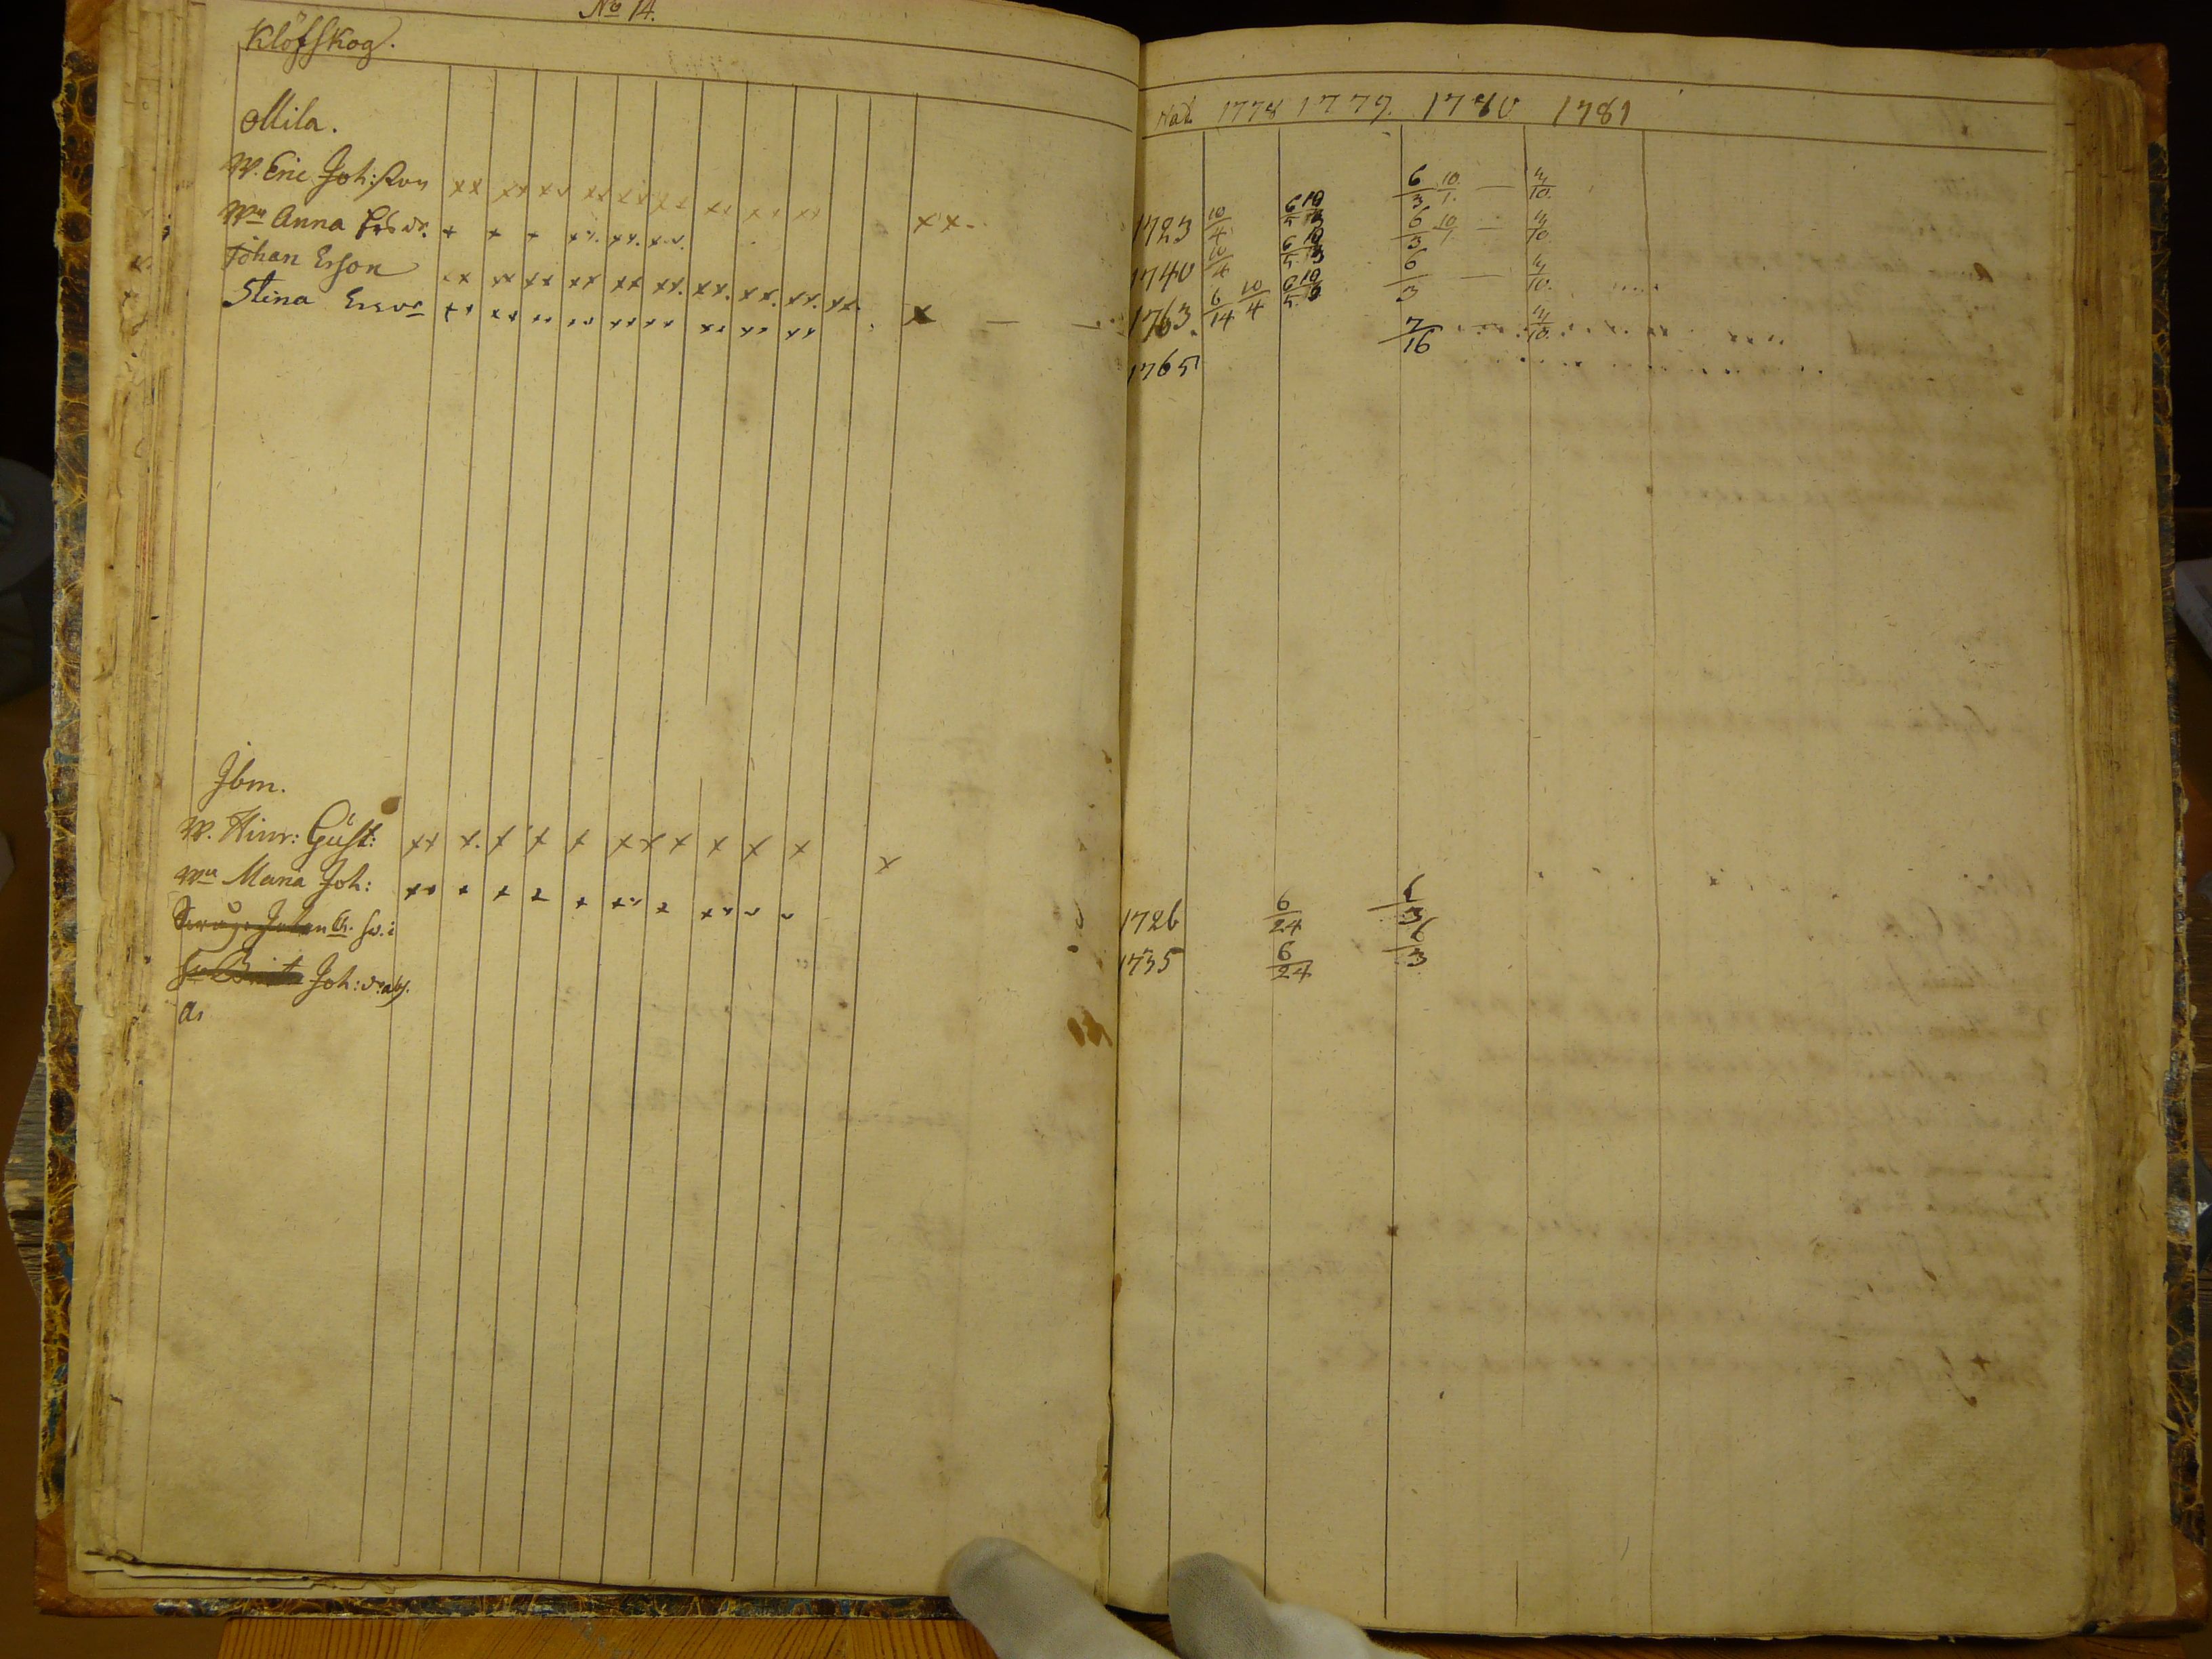 No 14.
Klöfskog.
Mila.
W. Eric Joh:son xx xx xx xx xx xx xx xx xx xx
Wu Anna Ersdr. x x x xx. xx. xx.
Johan Erson xx xx xx xx xx xx. xx. xx. xx. xx.
Stina Ersdr xx xx xx xx xx xx xx xx xx x
Ibm.
W. Hinr: Gust: xx x. x x x x x x x x x x
Wu Maria Joh: xx x x x x xx x xx x x
Johan
Joh:dr
Nat 1778 1779. 1780 1781
1723 10/4 6/5 10/3 6/3 10/1. — 4/10.
1740 10/4 6/5 10/3 6/3 10/1 — 4/10
1763. 6/14 10/4 6/5 10/3 6/3 — 4/10.
1765 7/16 4/10.
1726 6/24 6/3
1735 6/24 6/3